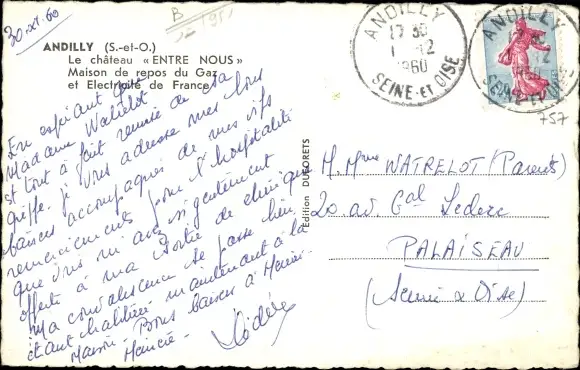 30 oct. 60
B
ANDILLY (S.-et-O.)
Le château « ENTRE NOUS »
Maison de repos du Gaz
et Electricité de France
En espérant que
Madame Watrelot
est tout à fait remise de sa
greffe. je vous adresse mes bons
baisers accompagnés de mes vifs
remerciements pour l'hospitalité
que vous m'avez si gentiment
offerte à ma sortie de clinique
Ma convalescence se passe bien
étant habituée maintenant à la
Maison. Bons baisers à
Edition DUFORETS
ANDILLY
17 30
1 12
1960
SEINE-ET-OISE
ANDILLY
757
M. Mme WATRELOT (Parents)
20. av. Gal Leclerc
PALAISEAU
(Seine & Oise)